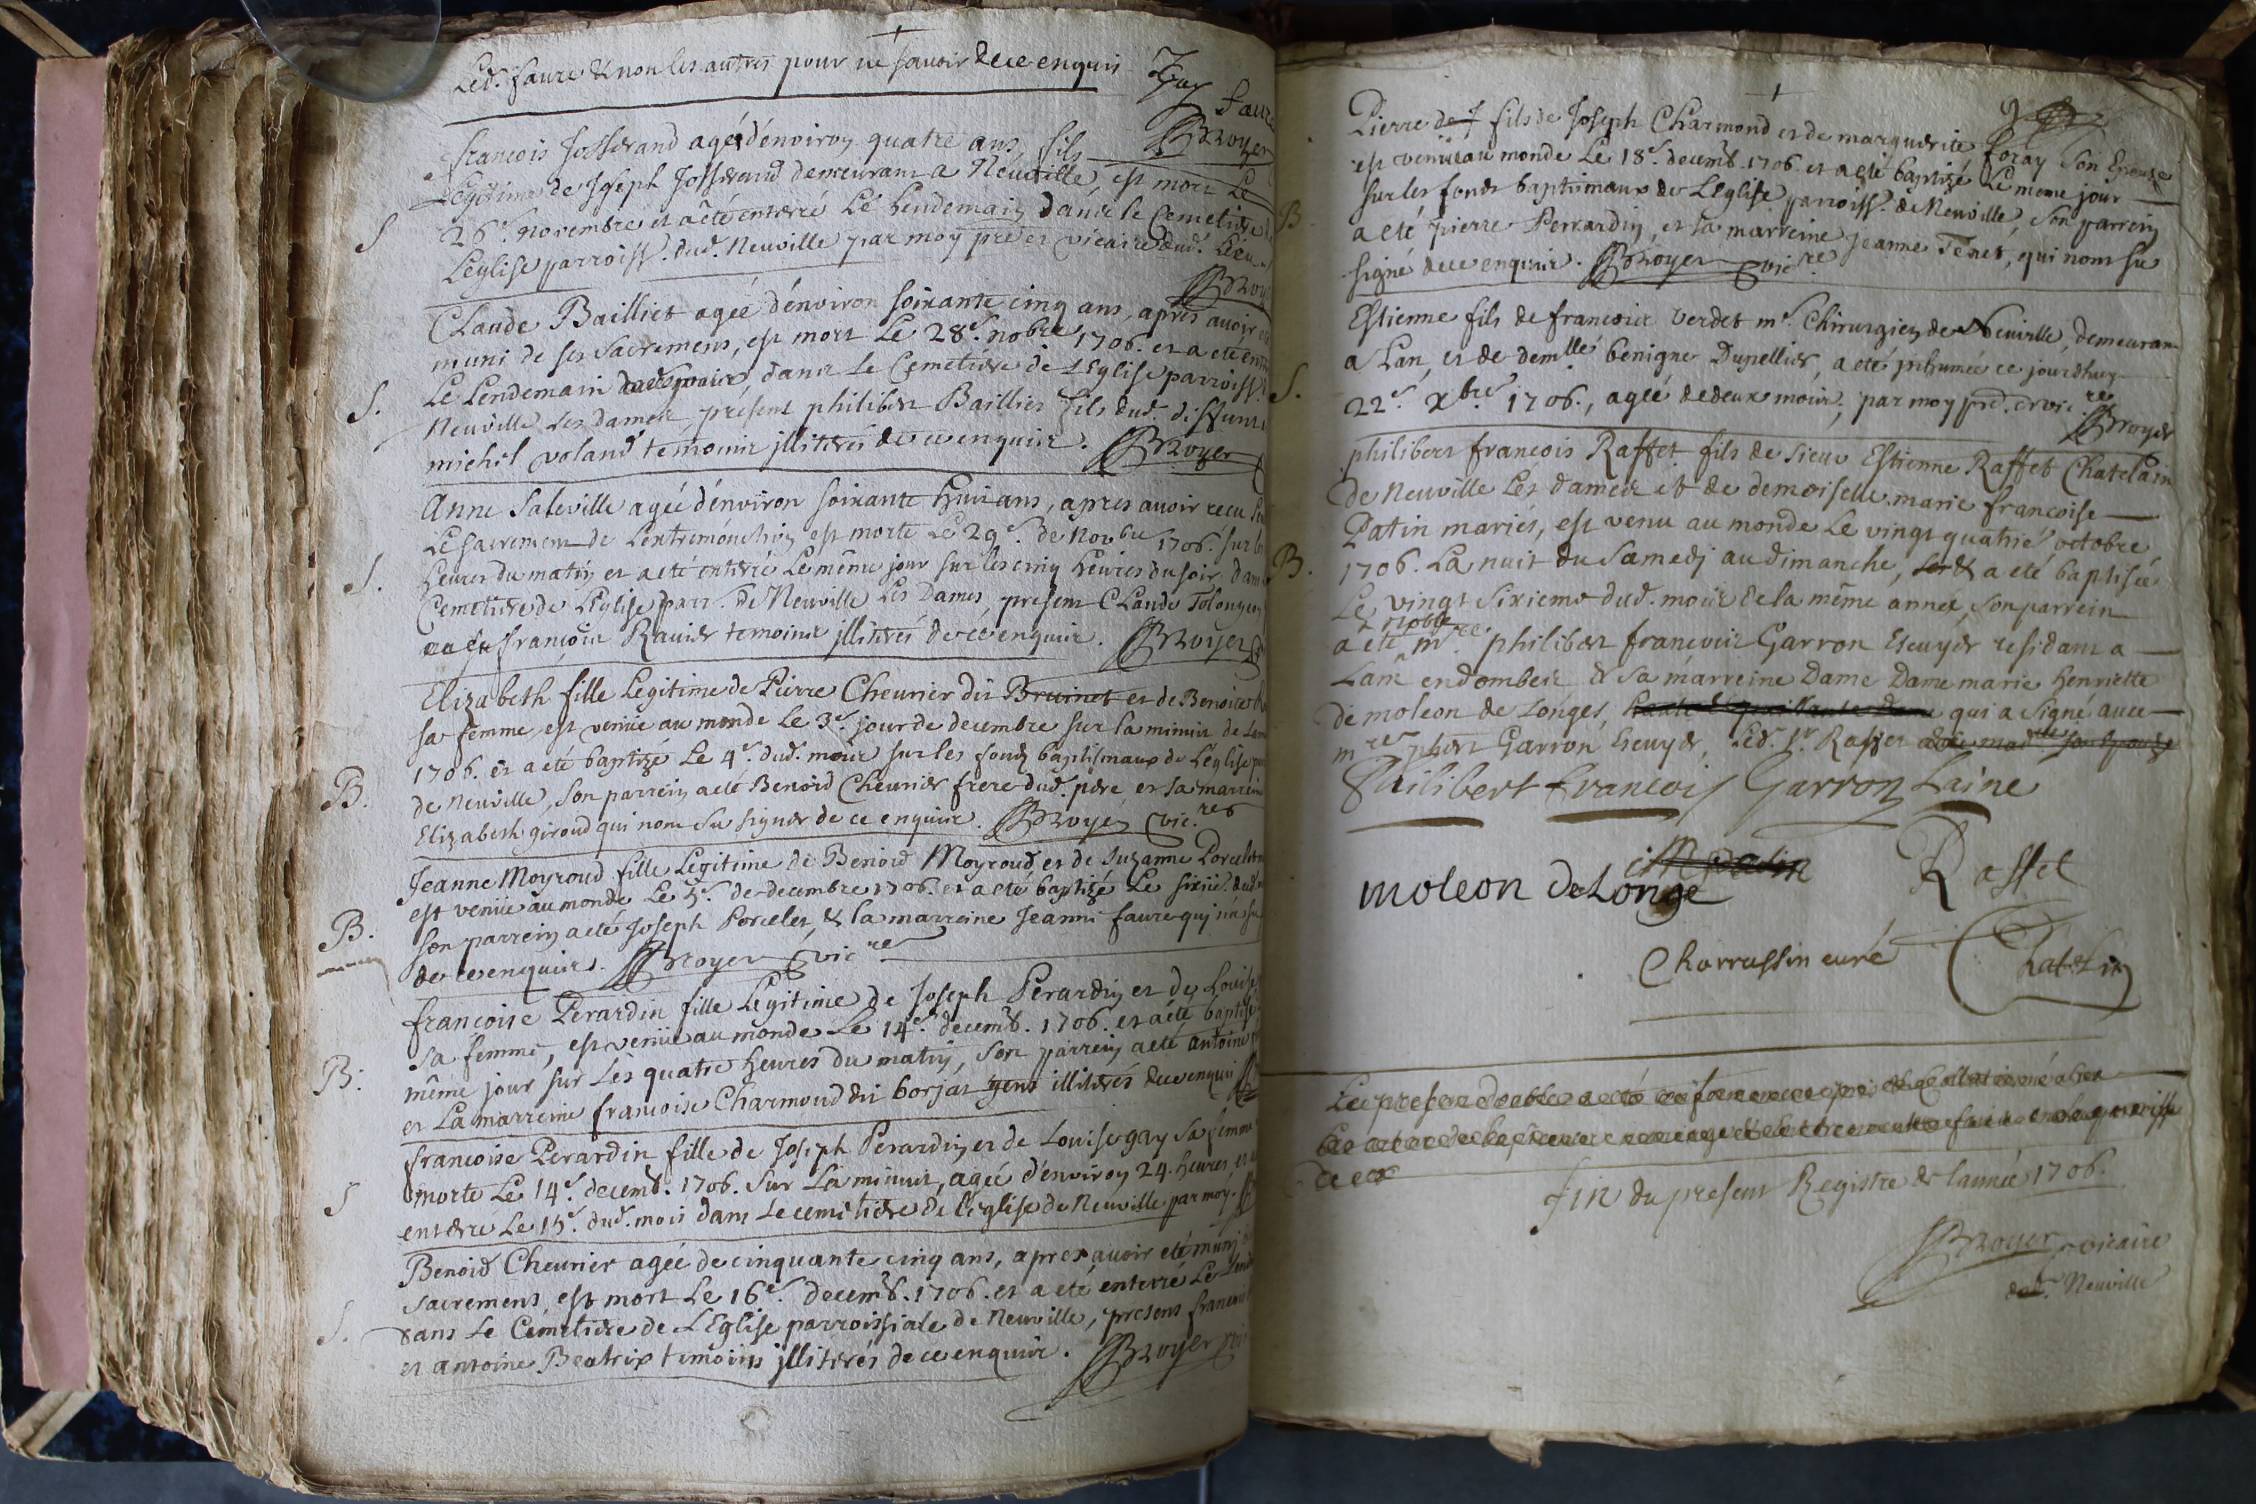 Led. faure & non les autres pour ne scavoir de ce enquis
Faure
Broyer
francois Josserand agéé d'énviron quatre ans, fils
legitime de Joseph Josserand demeurant a Neuville, est mort Le
S
26e. novembre et a été enterré Le Lendemain dans le Cemetiere de
L'eglise parroiss. dud. Neuville par moy pre et vicaire dud. Lieu
Broyer
Claude Bailliet agéé d'énviron soixante cinq ans, aprés avoir été
muni de ses sacremens, est mort Le 28e. nobre 1706. et a eté
S.
Le Lendemain dans Le Cemetiere de L'Eglise parroiss.
Neuville Les Dames, présent philibert Baillier fils dud. diffunt
michel voland temoins jllitérés de ce enquis. Broyer
Anne Sateville agéé d'énviron soixante huit ans, apres avoir recu
Le sacrement de L'extrémonction est morte Le 29e. de Novbre 1706. sur les
S.
heures du matin et a eté enterré Le même jour sur les cinq heures du soir, dans
Cemetiere de L'Eglise parr. de Neuville Les Dames, present Claude Tolongeon
françois Ravier temoins jllitérés de ce enquis. Broyer
Elizabeth fille Legitime de Pierre Cheurier dit Bruinet et de Benoite
sa femme est veniie au monde Le 3e. jour de decembre sur la minuit de
1706. et a été baptizé Le 4e. dud. mois sur les fonds baptismaux de L'église
B.
de neuville, son parrein a eté Benoid Cheurier frere dud. pére et sa marreine
Elizabeth giroud qui nont su signer de ce enquis. Broyer vic.re
Jeanne Moyroud fille Legitime de Benoid Moyroud et de Suzanne Porcelet
est veniie au monde Le 5e. de decembre 1706. et a eté baptizé Le sixiê. dud.
B.
son parrein a eté Joseph Porcelet, & la marreine Jeanne faure qui n'a su
de ce enquis. Broyer vic re
francoise Perardin fille Legitime de Joseph Perardin et de Louise
sa femme, est veniie au monde Le 14e. decemb. 1706. et a été baptisé
B:
même jour sur Lés quatre heures du matin, son parrein a eté antoine
et La marreine francoise Charmond dit borjat gens illitérés de ce enquis
francoise Perardin fille de Joseph Perardin et de Louise gay sa femme
S
morte Le 14e. decemb. 1706. sur La minuit, agéé d'énviron 24. heures, et
enterré Le 15e. dud. mois dans Le cemetiere de L'église de Neuville par moy.
Benoid Cheurier agéé de cinquante cinq ans, apres avoir eté muni
sacremens, est mort Le 16e. decemb. 1706. et a eté enterré Le
S.
dans Le Cemetiere de L'Eglise parroissiale de Neuville, present francois
et antoine Beatrix temoins jllitérés de ce enquis. Broyer
Pierre fils de Joseph Charmond et de marguerite foray son Epouse
est veniie au monde Le 18e. decemb. 1706. et a eté baptizé Le meme jour
B
sur les fonds baptismaux de L'Eglise parroiss. de Neuville, son parrein
a eté pierre Perrardin, et la marreine jeanne Tenet, qui nont su
signé de ce enquis. Broyer vic re.
Estienne fils de francois Verdet me. Chirurgien de Neuville, demeurant
a Lan, et de demlle. benigne Dupellier, a eté jnhumée ce jourdhuy
S.
22e. Xbre 1706., agéé de deux mois, par moy pre. et vic.re
Broyer
philibert francois Raffet fils de sieur Estienne Raffet Chatelain
de Neuville Les dames et de demoiselle marie francoise
Patin mariés, est venu au monde Le vingt quatrié octobre
B.
1706. La nuit du samedj au dimanche, & a eté baptiséé
Le vingt sixieme dud. mois de la même annéé, son parrein
noble
a eté mre. philibert francois Garron Escuyer residant a
Lan en dombes & sa marreine Dame Dame marie henriette
de moleon de Longes, qui a signé avec
mres. phert Garron Escuyer, Led. sr. Raffet
Philibert francois Garron Laine
moleon de Longe
Raffet
Charrassin curé
Chatelin
Fin du present Registre de lannéé 1706.
Broyer vicaire
dud. Neuville